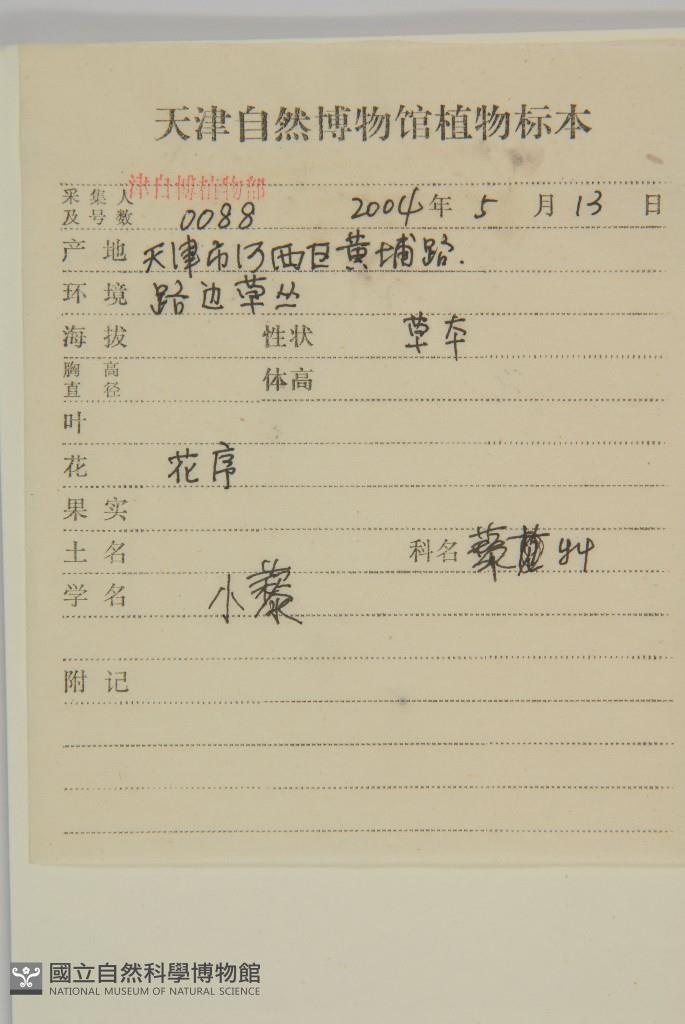 天津自然博物馆植物标本
津自博植物部
采集人及号数 0088 2004年 5 月 13 日
产地 天津市河西区黄埔路.
环境 路边草丛
海拔 性状 草本
胸高直径 体高
叶
花 花序
果实
土名 科名 藜科
学名 小藜
附记
國立自然科學博物館
NATIONAL MUSEUM OF NATURAL SCIENCE